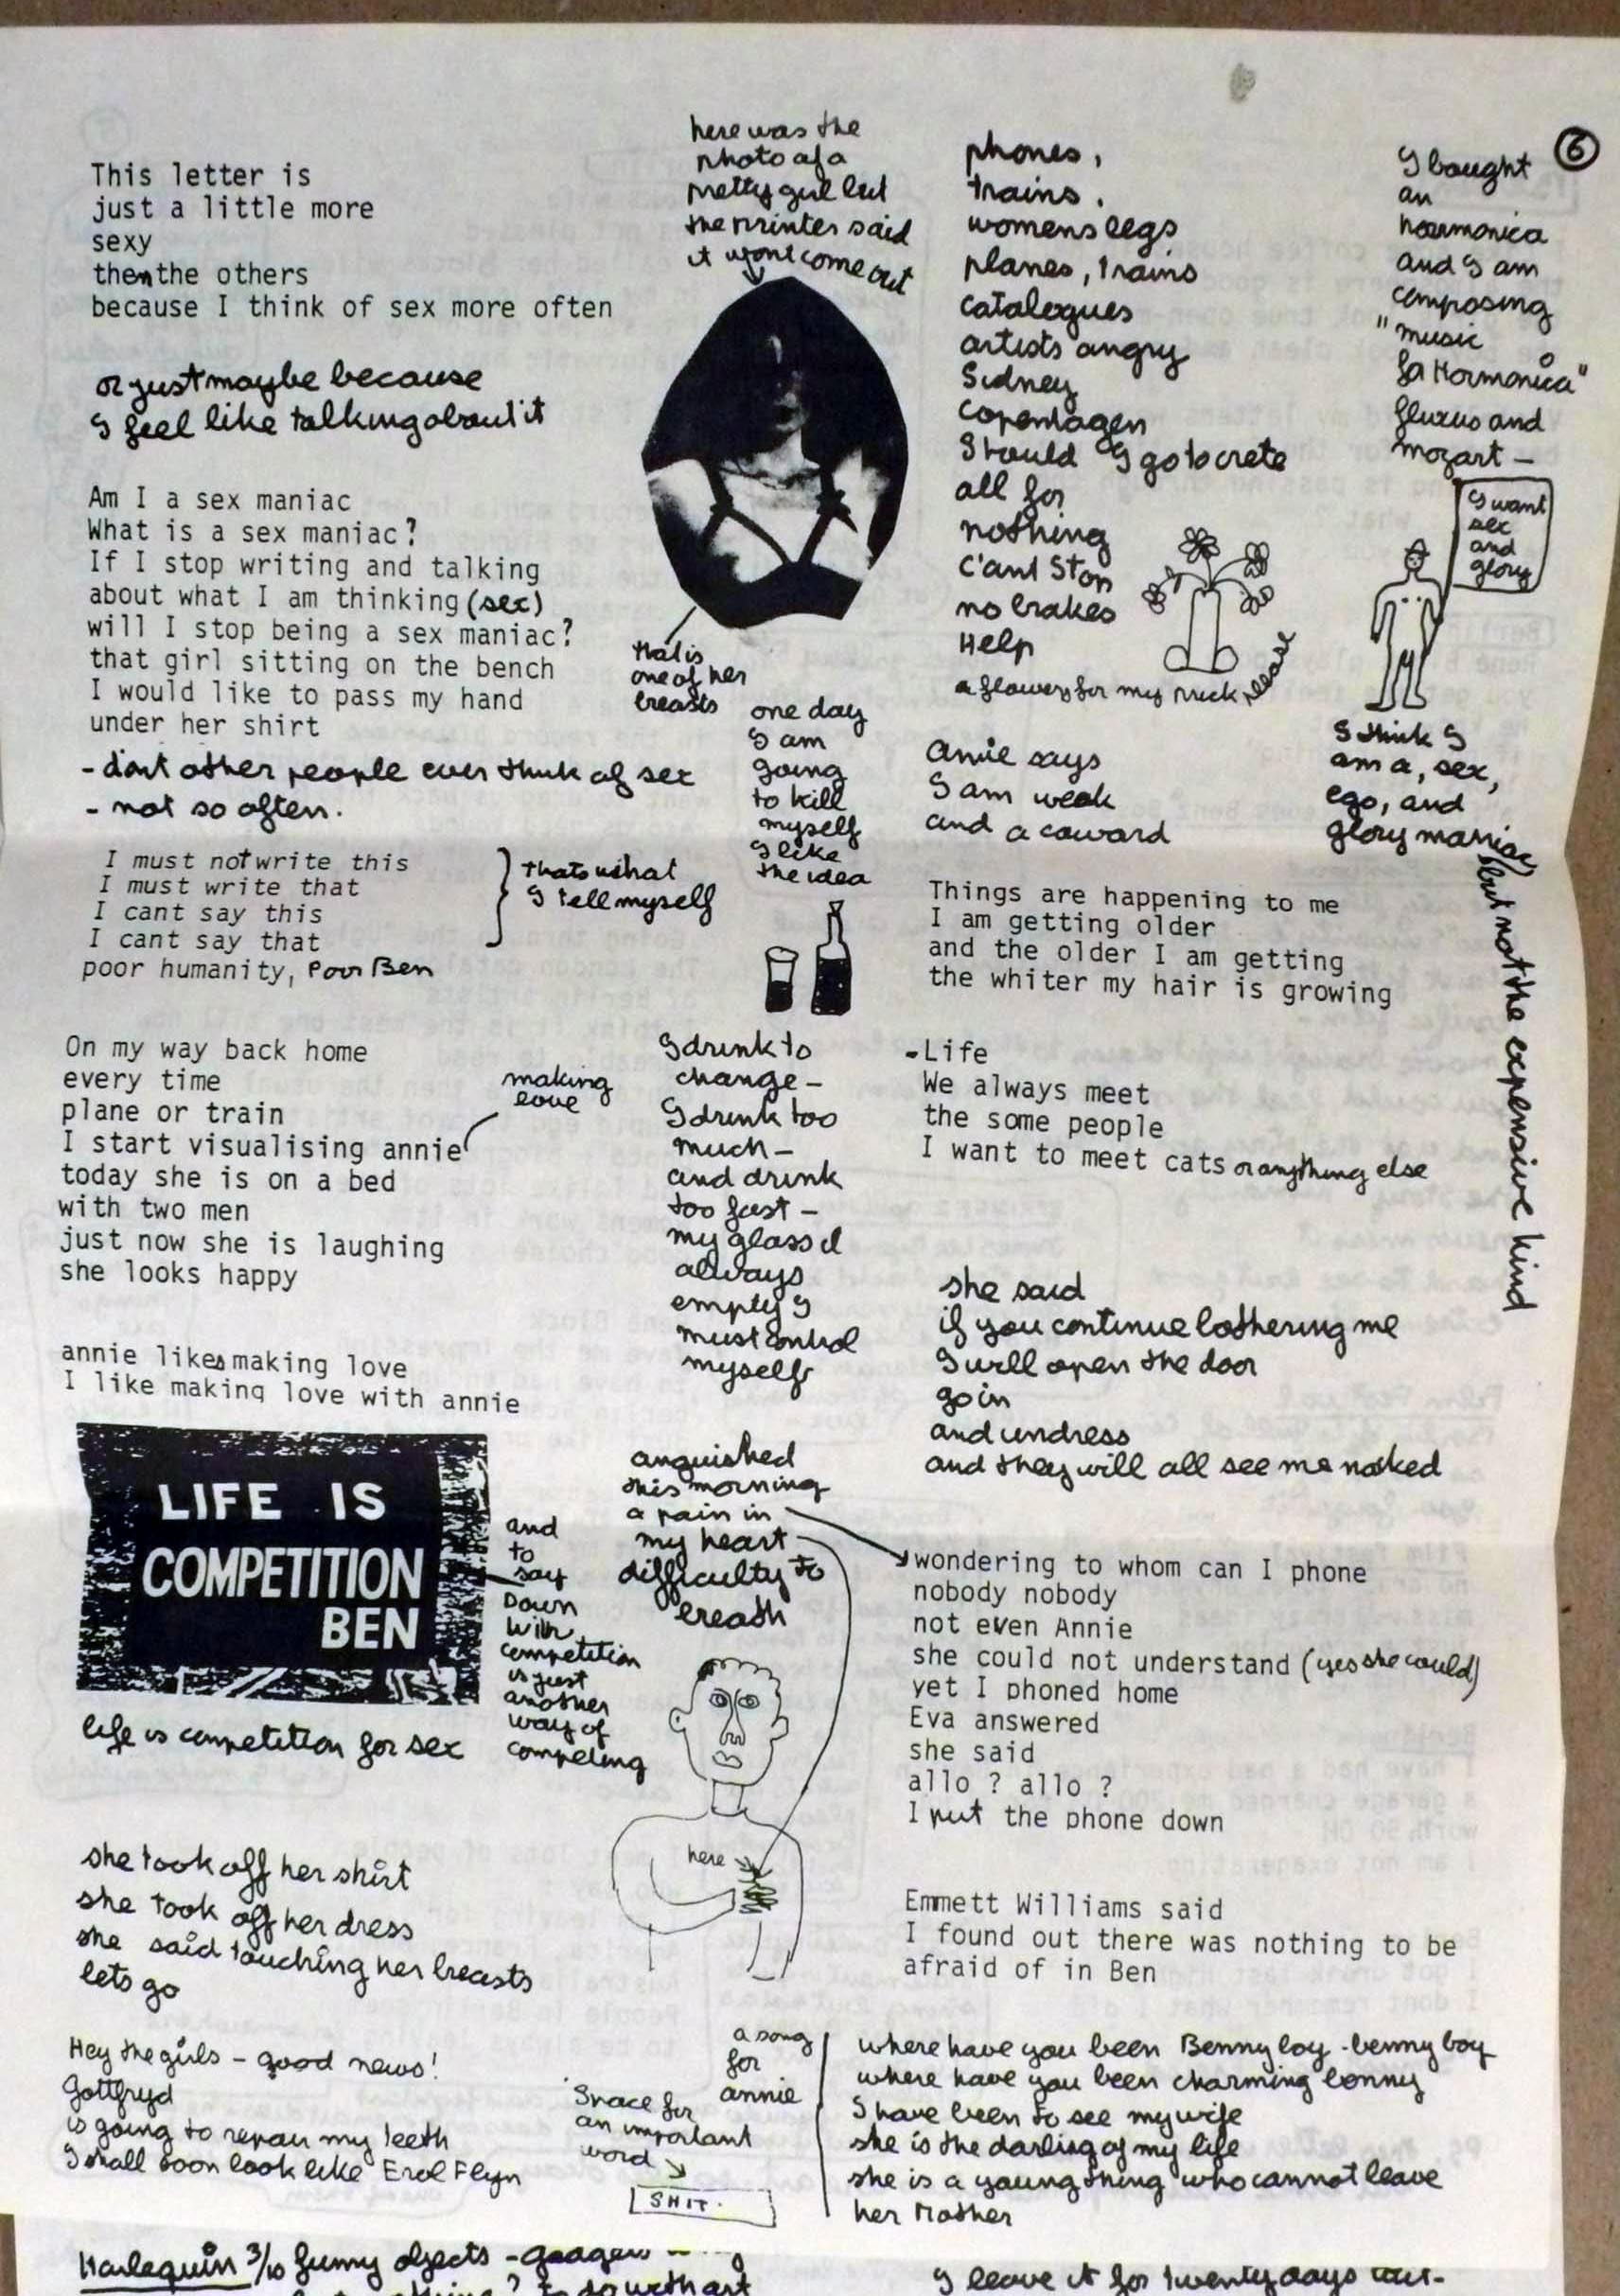 6
This letter is
just a little more
sexy
then the others
because I think of sex more often
or just maybe because
I feel like talking about it
Am I a sex maniac
What is a sex maniac?
If I stop writing and talking
about what I am thinking (sex)
will I stop being a sex maniac?
that girl sitting on the bench
I would like to pass my hand
under her shirt
- dont other people ever think of sex
- not so often.
I must not write this
I must write that
I cant say this
I cant say that
poor humanity, Poor Ben
thats what
I tell myself
On my way back home
every time
plane or train
I start visualising annie
today she is on a bed
with two men
just now she is laughing
she looks happy
making
love
annie likes making love
I like making love with annie
LIFE IS
COMPETITION
BEN
life is competition for sex
and
to
say
Down
with
competition
is just
another
way of
competing
she took off her shirt
she took off her dress
she said touching her breasts
lets go
Hey the girls - good news!
Gottfryd
is going to repair my teeth
I shall soon look like Erol Flyn
here was the
photo of a
pretty girl but
the printer said
it wont come out
that is
one of her
breasts
one day
I am
going
to kill
myself
I like
the idea
I drink to
change -
I drink too
much -
and drink
too fast -
my glass is
always
empty I
must control
myself
anguished
this morning
a pain in
my heart
difficulty to
breath
here
Space for
an important
word
SHIT.
phones,
trains.
womens legs
planes, trains
catalogues
artists angry
Sidney
copenhagen
Should I go to crete
all for
nothing
C'ant Stop
no brakes
Help
a flowers for my prick please
annie says
I am weak
and a coward
Things are happening to me
I am getting older
and the older I am getting
the whiter my hair is growing
- Life
We always meet
the some people
I want to meet cats or anything else
she said
if you continue bothering me
I will open the door
go in
and undress
and they will all see me naked
wondering to whom can I phone
nobody nobody
not even Annie
she could not understand (yes she could)
yet I phoned home
Eva answered
she said
allo ? allo ?
I put the phone down
Emmett Williams said
I found out there was nothing to be
afraid of in Ben
a song
for
annie
where have you been Benny boy - benny boy
where have you been charming benny
I have been to see my wife
she is the darling of my life
she is a young thing who cannot leave
her Mother
I bought
an
harmonica
and I am
composing
"music
for Harmonica"
fluxus and
mozart -
I want
sex
and
glory
I think I
am a, sex,
ego, and
glory maniac
but not the expensive kind
Harlequin 3/10 funny objects -
I leave it for twenty days